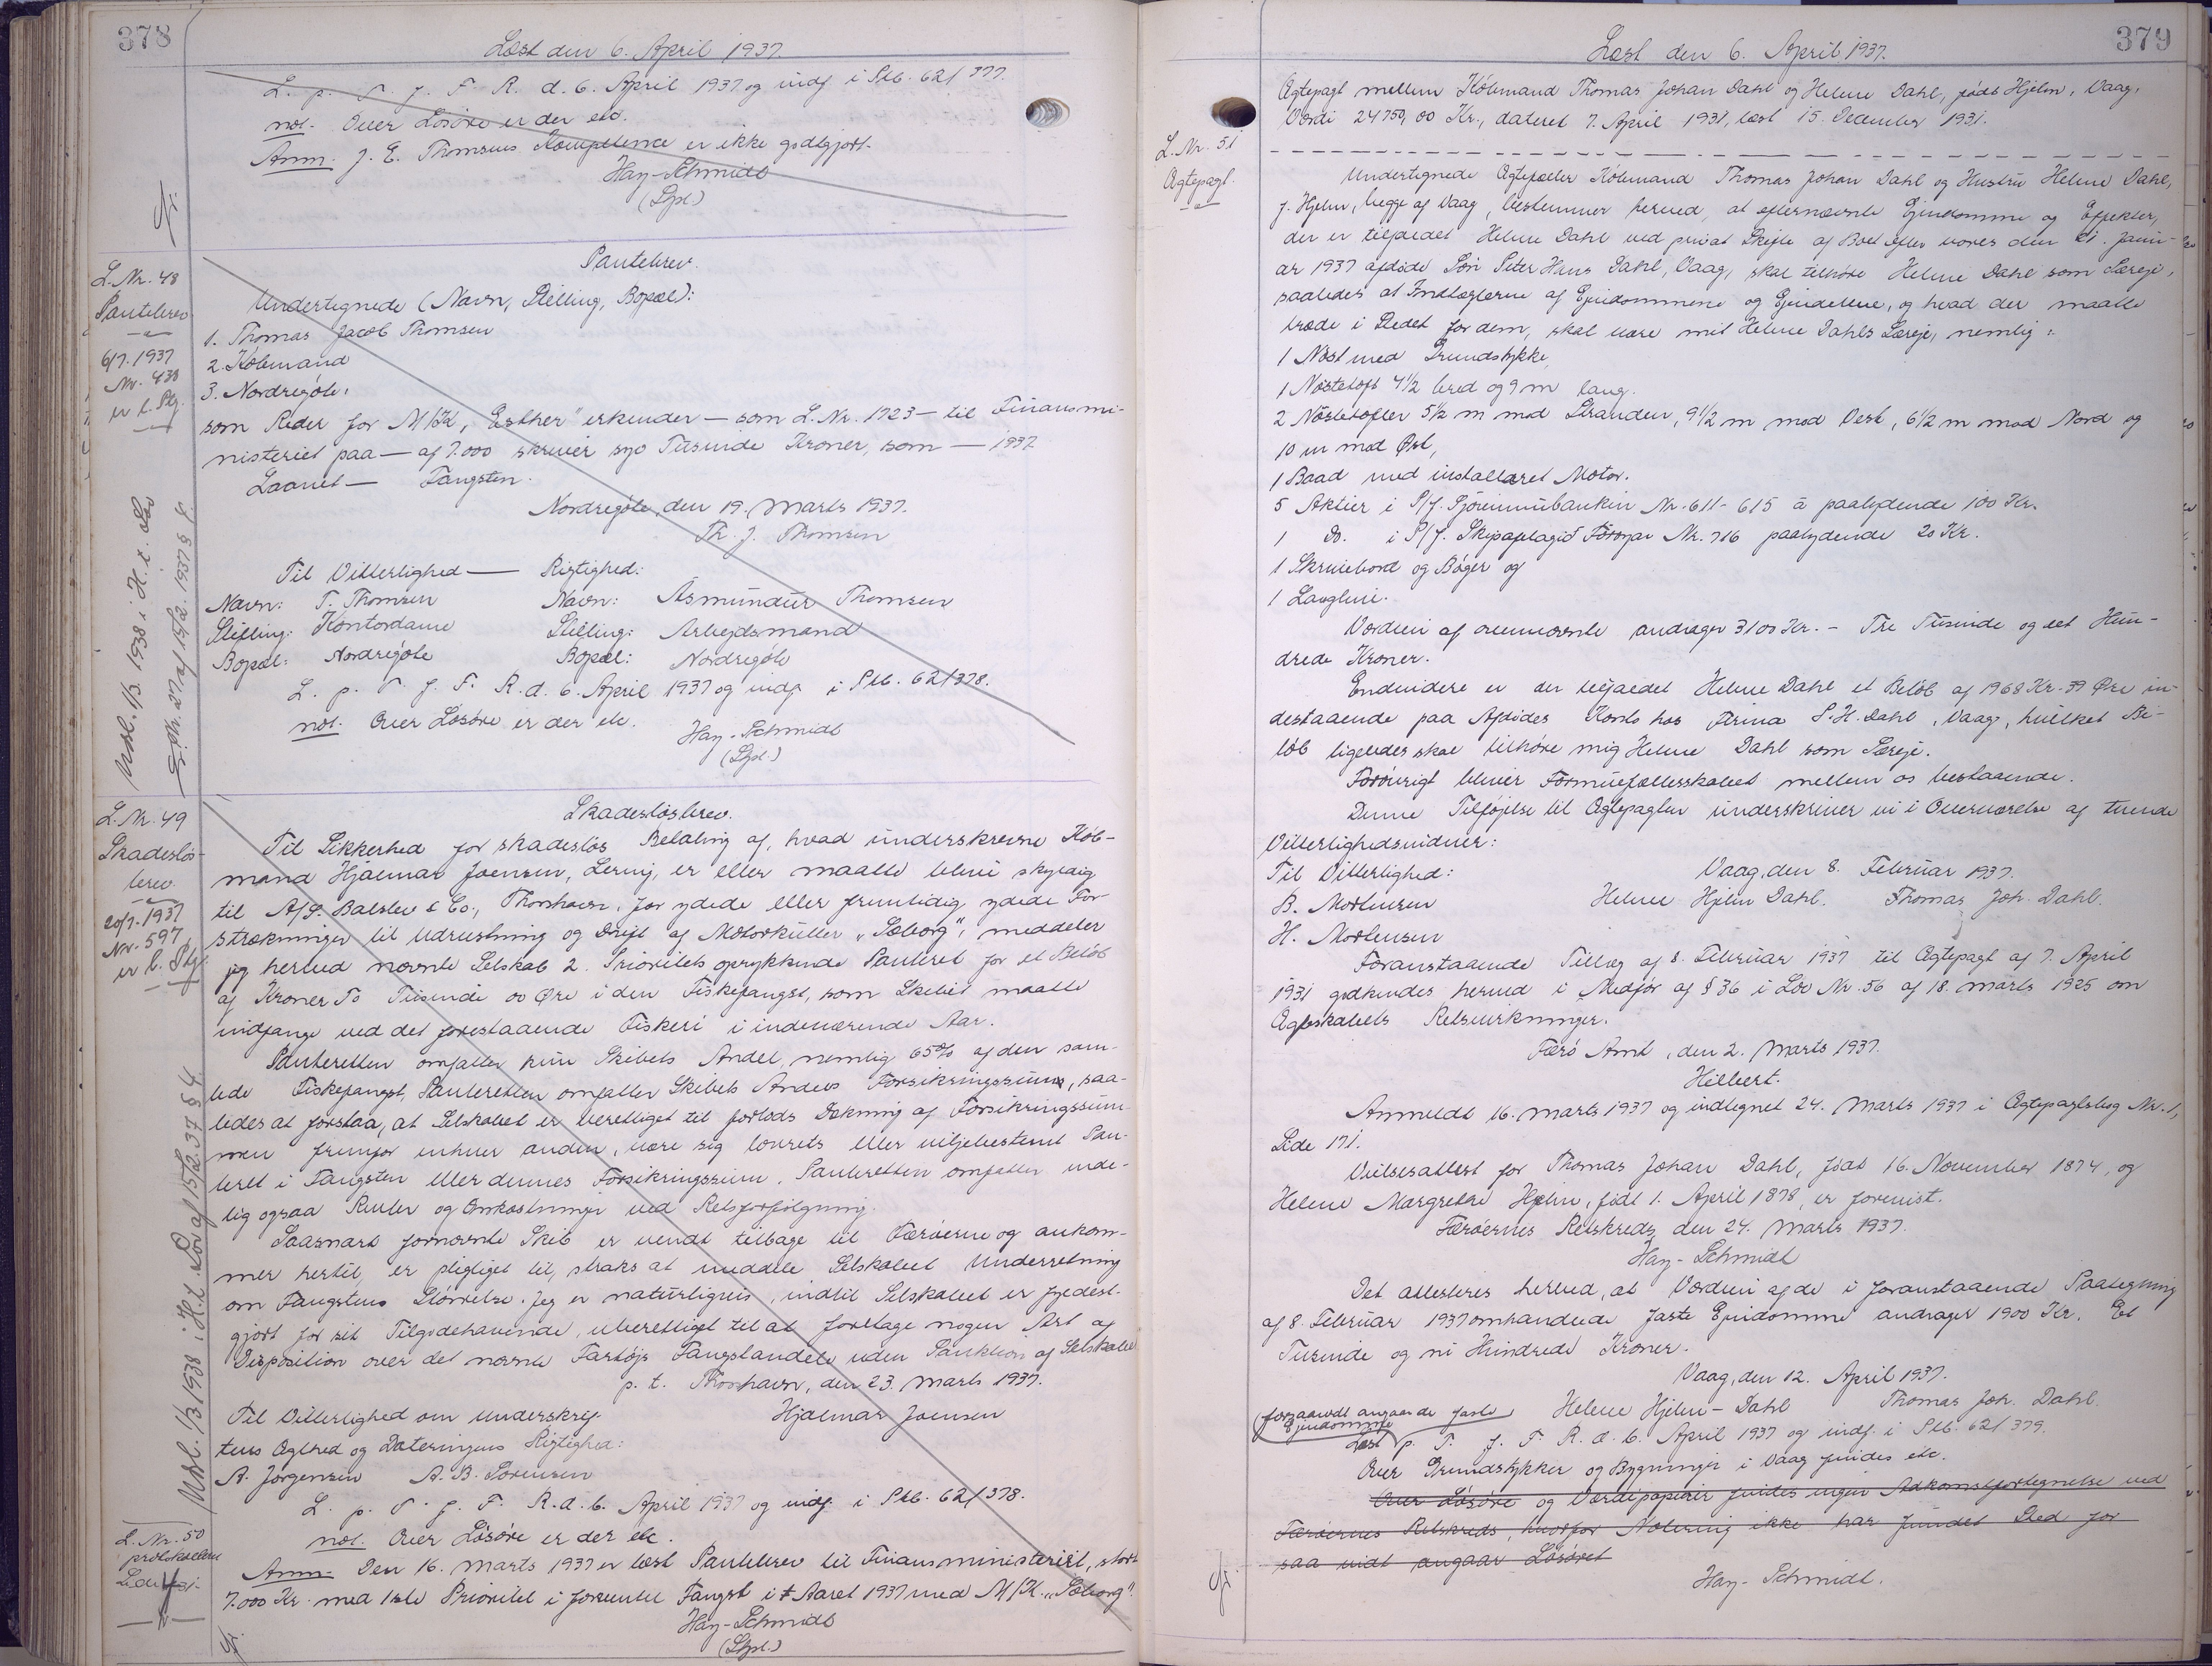 378
Læst den 6. April 1937.
L. p. T. f. F. R. d. 6. April 1937 og indf. i Skb. 62/377.
not. Over Løsøre er der etc.
Anm. J. E. Thomsens Kompetence er ikke godtgjort.
Hay-Schmidt
(Lgst.)
L. Nr. 48
Pantebrev
6/7. 1937
Nr. 438
er l. Stg.
Udsl. 1/3 1938 i H. t. Lov
Nr. 27 af 15/2. 1937 § 8.
Pantebrev.
Undertegnede (Navn, Stilling, Bopæl):
1. Thomas Jacob Thomsen
2. Købmand
3. Nordregøte.
som Reder for M/K „Esther" erkender — som L. Nr. 1723 — til Finansmi-
nisteriet paa — af 7.000 skriver syv Tusinde Kroner, som — 1937
Laanet — Fangsten.
Nordregøte, den 19. Marts 1937.
Th. J. Thomsen
Til Vitterlighed — Rigtighed:
Navn: T. Thomsen Navn: Ásmundur Thomsen
Stilling: Kontordame Stilling: Arbejdsmand
Bopæl: Nordregøte Bopæl: Nordregøte
L. p. T. f. F. R. d. 6. April 1937 og indf. i Skb. 62/378.
not. Over Løsøre er der etc.
Hay-Schmidt
(Lgst.)
L. Nr. 49
Skadesløs-
brev.
20/7. 1937
Nr. 597
er l. Stg.
Udsl. 1/3 1938 i H. t. Lov af 15/2. 37 § 4.
Skadesløsbrev.
Til Sikkerhed for skadesløs Betaling af, hvad underskrevne Køb-
mand Hjalmar Joensen, Lervig, er eller maatte blive skyldig
til A/S. Balslev & Co., Thorshavn, for ydede eller fremtidig ydede For-
strækninger til Udrustning og Drift af Motorkutter „Søborg", meddeler
jeg herved nævnte Selskab 2. Prioritets oprykkende Panteret for et Beløb
af Kroner To Tusinde 00 Øre i den Fiskefangst, som Skibet maatte
indfange ved det forestaaende Fiskeri i indeværende Aar.
Panteretten omfatter kun Skibets Andel, nemlig 65% af den sam-
lede Fiskefangst, Panteretten omfatter Skibets Andels Forsikringssum, saa-
ledes at forstaa, at Selskabet er berettiget til forlods Dækning af Forsikringssum-
men fremfor enhver anden, være sig lovrets eller viljebestemt Pan-
teret i Fangsten eller dennes Forsikringssum. Panteretten omfatter ende-
lig ogsaa Renter og Omkostninger ved Retsforfølgning.
Saasnart fornævnte Skib er vendt tilbage til Færøerne og ankom-
mer hertil, er pligtiget til, straks at meddele Selskabet Underretning
om Fangstens Størrelse. Jeg er naturligvis, indtil Selskabet er fyldest-
gjort for sit Tilgodehavende, uberettiget til at foretage nogen Art af
Disposition over det nævnte Fartøjs Fangstandele uden Sanktion af Selskabet
p. t. Thorshavn, den 23. Marts 1937.
Til Vitterlighed om Underskrif- Hjalmar Joensen
tens Ægthed og Dateringens Rigtighed:
A. Jørgensen A. B. Sørensen
L. p. T. f. F. R. d. 6. April 1937 og indf. i Skb. 62/378.
not. Over Løsøre er der etc.
Anm. Den 16. Marts 1937 er læst Pantebrev til Finansministeriet, stort
7.000 Kr. med 1ste Prioritet i forventet Fangst i Aaret 1937 med M/K. „Søborg".
Hay-Schmidt
(Lgst.)
L. Nr. 50
protokolleret
Side
379
Læst den 6. April 1937.
L. Nr. 51
Ægtepagt.
Ægtepagt mellem Købmand Thomas Johan Dahl og Helene Dahl, født Hjelm, Vaag,
Værdi 24750,00 Kr., dateret 7. April 1931, læst 15. December 1931.
Undertegnede Ægtefæller Købmand Thomas Johan Dahl og Hustru Helene Dahl,
f. Hjelm, begge af Vaag, bestemmer herved, at efternævnte Ejendomme og Effekter,
der er tilfaldet Helene Dahl ved privat Skifte af Boet efter vores den 21. Janu-
ar 1937 afdøde Søn Peter Hans Dahl, Vaag, skal tilhøre Helene Dahl som Særeje,
saaledes at Indtægterne af Ejendommene og Ejendellene, og hvad der maatte
træde i Stedet for dem, skal være mit Helene Dahls Særeje, nemlig:
1 Nøst med Grundstykke,
1 Nøstetoft 4½ bred og 9 m lang.
2 Nøstetofter 5½ m mod Stranden, 9½ m mod Vest, 6½ m mod Nord og
10 m mod Øst,
1 Baad med installeret Motor.
5 Aktier i P/f. Sjóvinnubankin Nr. 611-615 à paalydende 100 Kr.
1 Do. i P/f. Skipafelagið Føroyar Nr. 716 paalydende 20 Kr.
1 Skrivebord og Bøger og
1 Langline.
Værdien af ovennævnte andrager 3100 Kr. — Tre Tusinde og et Hun-
drede Kroner.
Endvidere er der tilfaldet Helene Dahl et Beløb af 1968 Kr. 39 Øre in-
destaaende paa Afdødes Konto hos Firma P. H. Dahl, Vaag, hvilket Be-
løb ligeledes skal tilhøre mig Helene Dahl som Særeje.
Forøvrigt bliver Formuefællesskabet mellem os bestaaende.
Denne Tilføjelse til Ægtepagten underskriver vi i Overværelse af tvende
Vitterlighedsvidner:
Til Vitterlighed: Vaag, den 8. Februar 1937.
B. Mortensen Helene Hjelm Dahl. Thomas Joh. Dahl.
H. Mortensen
Foranstaaende Tillæg af 8. Februar 1937 til Ægtepagt af 7. April
1931 godkendes herved i Medfør af § 36 i Lov Nr. 56 af 18. marts 1925 om
Ægteskabets Retsvirkninger.
Færø Amt, den 2. Marts 1937.
Hilbert.
Anmeldt 16. marts 1937 og indtegnet 24. Marts 1937 i Ægtepagtsbog Nr. 1,
Side 171.
Vielsesattest for Thomas Johan Dahl, født 16. November 1874, og
Helene Margrethe Hjelm, født 1. April 1878, er forevist.
Færøernes Retskreds, den 24. Marts 1937.
Hay-Schmidt
Det attesteres herved, at Værdien af de i foranstaaende Paategning
af 8. Februar 1937 omhandlede faste Ejendomme andrager 1900 Kr. Et
Tusinde og ni Hundrede Kroner.
Vaag, den 12. April 1937.
Helene Hjelm-Dahl Thomas Joh. Dahl.
(forsaavidt angaaende faste
Ejendomme)
Læst p. T. f. F. R. d. 6. April 1937 og indf. i Skb. 62/379.
Over Grundstykker og Bygninger i Vaag findes etc.
Over Løsøre og Værdipapirer findes ingen Adkomstfortegnelse ved
Færøernes Retskreds, hvorfor Notering ikke har fundet Sted for
saa vidt angaar Løsøret
Hay-Schmidt.